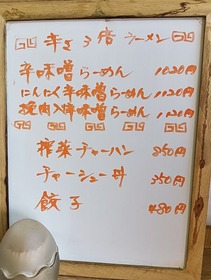 辛さ3倍ラーメン
辛味噌らーめん 1020円
にんにく辛味噌らーめん 1120円
挽肉入辛味噌らーめん 1120円
搾菜チャーハン 850円
チャーシュー丼 350円
餃子 480円